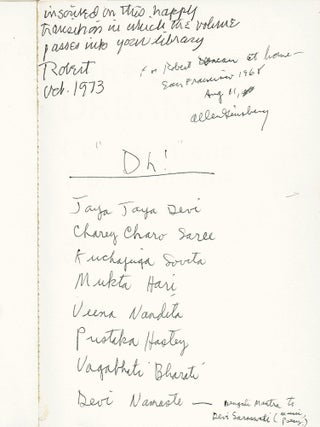 inscribed on this happy
transition in which the volume
passes into your library
Robert
Oct. 1973
For Robert Duncan at home—
San Francisco 1968
Aug 11,
Allen Ginsberg
"Oh!"
Jaya Jaya Devi
Charey Charo Saree
Kuchajuga Sovita
Mukta Hari
Veena Nandita
Pustika Hastey
Vagabhati Bharati
Devi Namaste — Bengali Mantra to
Devi Saraswati (